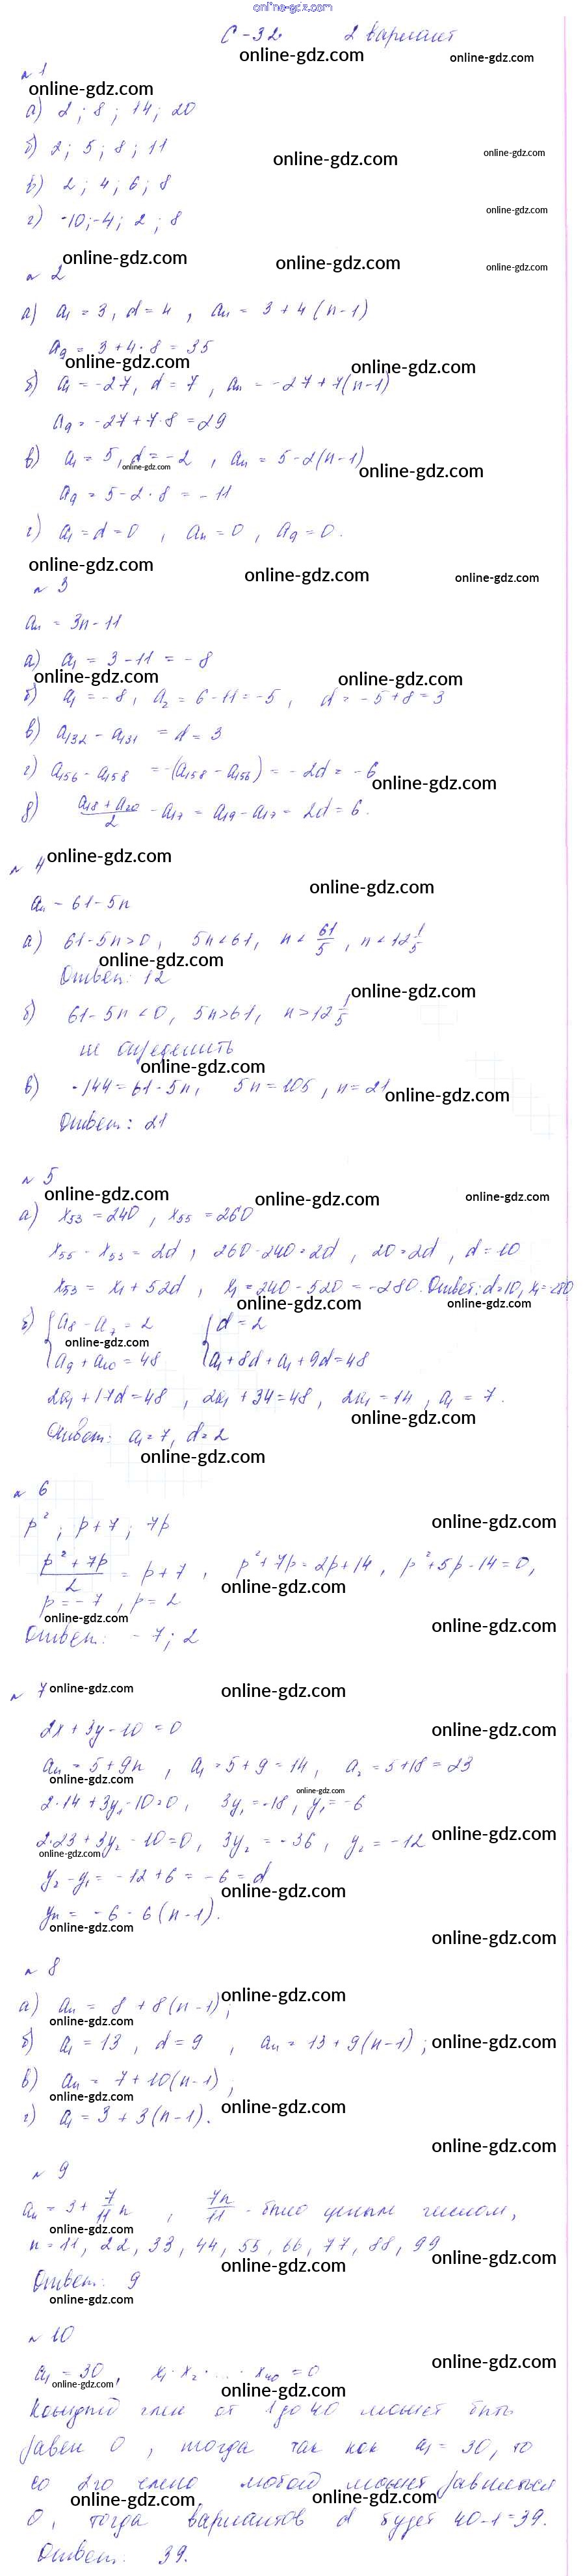 online-gdz.com
С-32 2 вариант
online-gdz.com online-gdz.com
№1
online-gdz.com
а) 2; 8; 14; 20
б) 2; 5; 8; 11
online-gdz.com online-gdz.com
в) 2; 4; 6; 8
г) -10; -4; 2; 8
online-gdz.com
online-gdz.com online-gdz.com online-gdz.com
№2
а) a₁ = 3, d = 4, aₙ = 3+4(n-1)
a₉ = 3+4·8 = 35
online-gdz.com online-gdz.com
б) a₁ = -27, d = 7, aₙ = -27+7(n-1)
a₉ = -27+7·8 = 29
в) a₁ = 5, d = -2, aₙ = 5-2(n-1)
online-gdz.com online-gdz.com
a₉ = 5-2·8 = -11
г) a₁ = d = 0, aₙ = 0, a₉ = 0.
online-gdz.com online-gdz.com online-gdz.com
№3
aₙ = 3n-11
а) a₁ = 3-11 = -8
online-gdz.com online-gdz.com
б) a₁ = -8, a₂ = 6-11 = -5, d = -5+8 = 3
в) a₁₃₂ - a₁₃₁ = d = 3
г) a₁₅₆ - a₁₅₈ = -(a₁₅₈ - a₁₅₆) = -2d = -6
online-gdz.com
д) (a₁₈+a₂₀)/2 - a₁₇ = a₁₉ - a₁₇ = 2d = 6.
№4 online-gdz.com
online-gdz.com
aₙ - 61-5n
а) 61-5n>0, 5n<61, n < 61/5, n < 12 1/5
online-gdz.com
Ответ: 12
online-gdz.com
б) 61-5n<0, 5n>61, n>12 1/5
не определить
online-gdz.com
в) -144 = 61-5n, 5n = 105, n = 21
online-gdz.com
Ответ: 21
№5
online-gdz.com online-gdz.com online-gdz.com
а) x₅₃ = 240, x₅₅ = 260
x₅₅ - x₅₃ = 2d, 260-240 = 2d, 20 = 2d, d = 10
x₅₃ = x₁ + 52d, x₁ = 240-520 = -280. Ответ: d=10, x₁=-280
online-gdz.com online-gdz.com
б) { a₈ - a₇ = 2 { d = 2
online-gdz.com
a₉ + a₁₀ = 48 a₁+8d+a₁+9d = 48
2a₁+17d = 48, 2a₁+34 = 48, 2a₁ = 14, a₁ = 7.
online-gdz.com
Ответ: a₁ = 7, d = 2
online-gdz.com
№6
p²; p+7; 7p
online-gdz.com
(p²+7p)/2 = p+7, p²+7p = 2p+14, p²+5p-14 = 0,
online-gdz.com
p = -7, p = 2
online-gdz.com online-gdz.com
Ответ: -7; 2
№7 online-gdz.com online-gdz.com
2x+3y-10 = 0
online-gdz.com
aₙ = 5+9n, a₁ = 5+9 = 14, a₂ = 5+18 = 23
online-gdz.com online-gdz.com
2·14+3y₁-10=0, 3y₁ = -18, y₁ = -6
2·23+3y₂-10=0, 3y₂ = -36, y₂ = -12
online-gdz.com online-gdz.com
y₂-y₁ = -12+6 = -6 = d
online-gdz.com
yₙ = -6-6(n-1).
online-gdz.com online-gdz.com
№8
online-gdz.com
а) aₙ = 8+8(n-1);
online-gdz.com
б) a₁ = 13, d = 9, aₙ = 13+9(n-1);
online-gdz.com
в) aₙ = 7+10(n-1);
online-gdz.com online-gdz.com
г) a₁ = 3+3(n-1).
online-gdz.com
№9
aₙ = 3+ 7/11 n, 7n/11 - было целым числом,
online-gdz.com
n = 11, 22, 33, 44, 55, 66, 77, 88, 99
online-gdz.com online-gdz.com
Ответ: 9
online-gdz.com
№10
online-gdz.com
a₁ = 30, x₁·x₂·...·x₄₀ = 0
online-gdz.com online-gdz.com
Каждый член от 1 до 40 может быть
равен 0, тогда так как a₁ = 30, то
со 2го члена любой может равняться
online-gdz.com online-gdz.com
0, тогда вариантов d будет 40-1=39.
Ответ: 39.